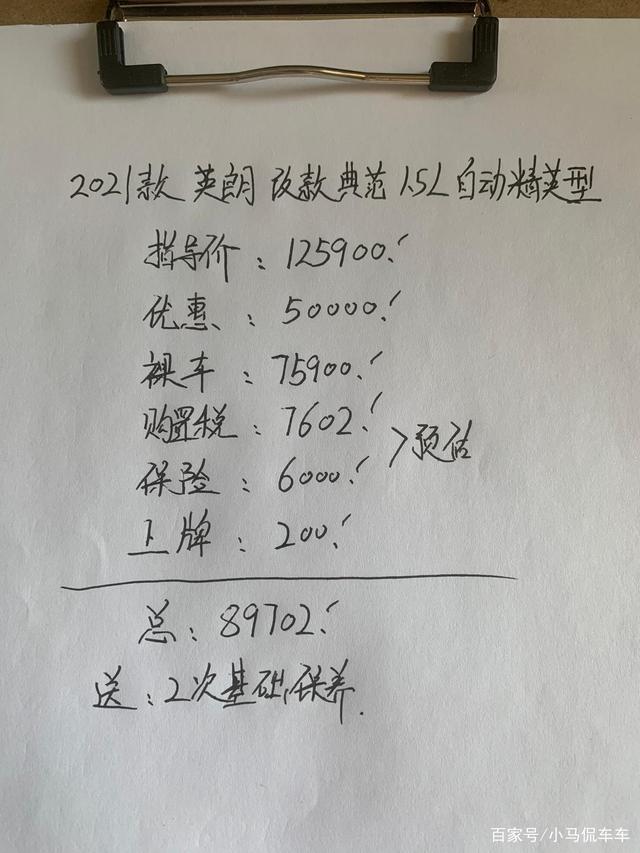 2021款 英朗 改款典范 1.5L 自动精英型
指导价：125900.
优惠：50000.
裸车：75900.
购置税：7602.
保险：6000.
>预估
上牌：200.
总：89702.
送：2次基础保养.
百家号/小马侃车车